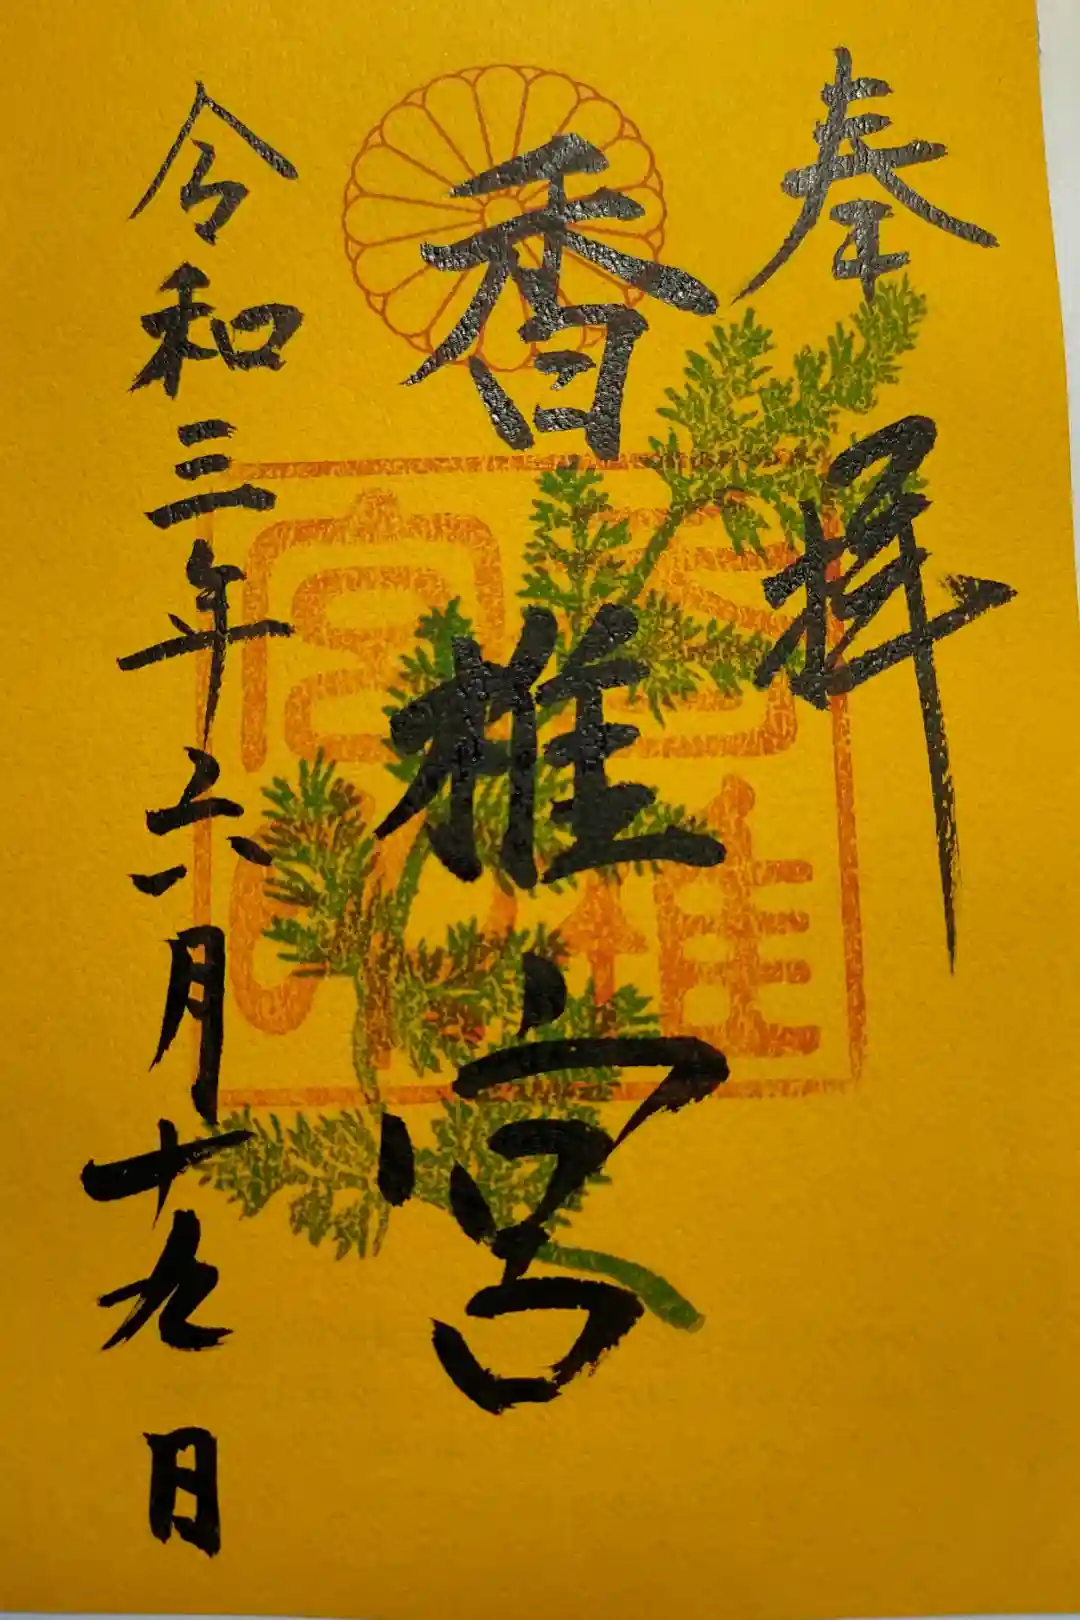 奉拝
香椎宮
令和三年六月十九日
香椎
宮印